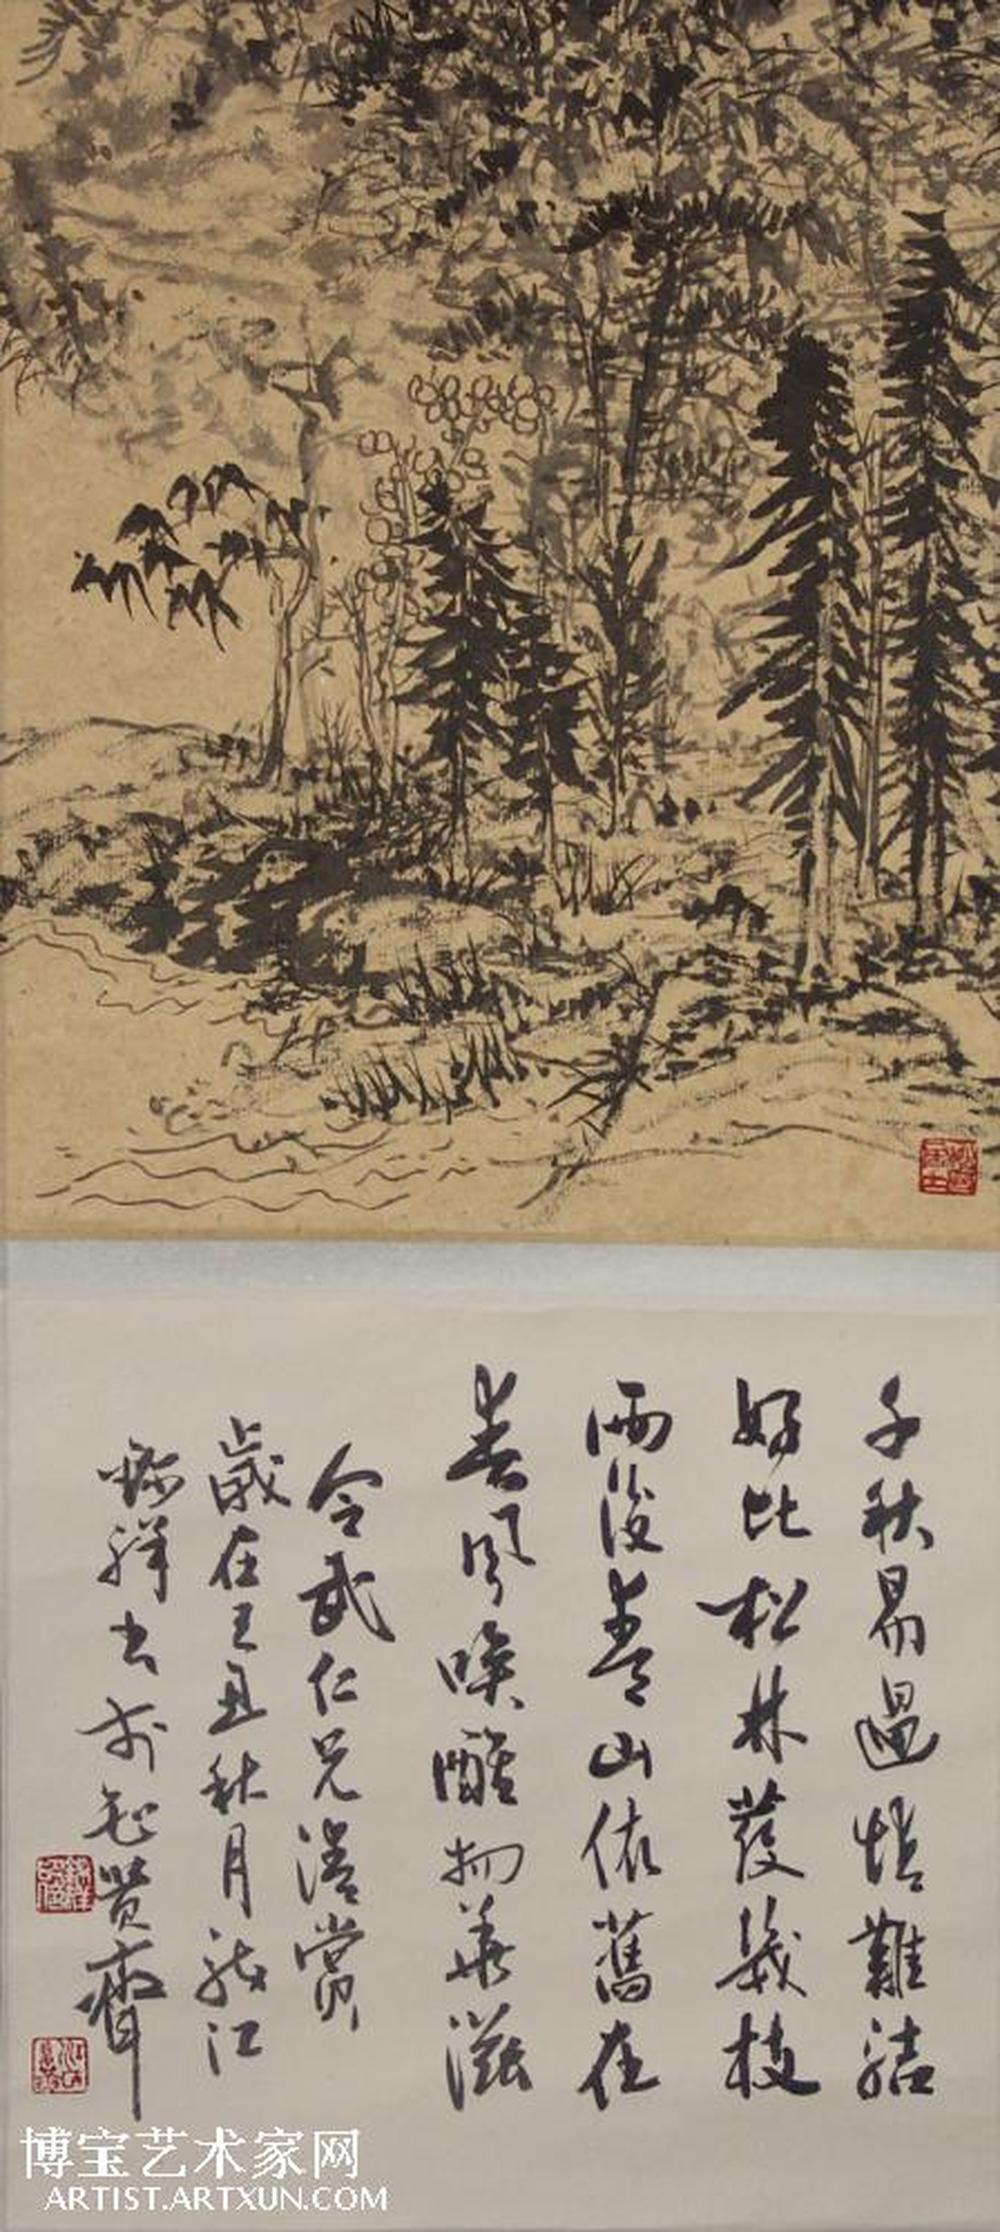 千秋易過悟難結
好比松林發幾枝
雨後青山依舊在
春風喚醒物華滋
令武仁兄清賞
歲在丁丑秋月於江
書於
齋
博宝艺术家网
ARTIST.ARTXUN.COM